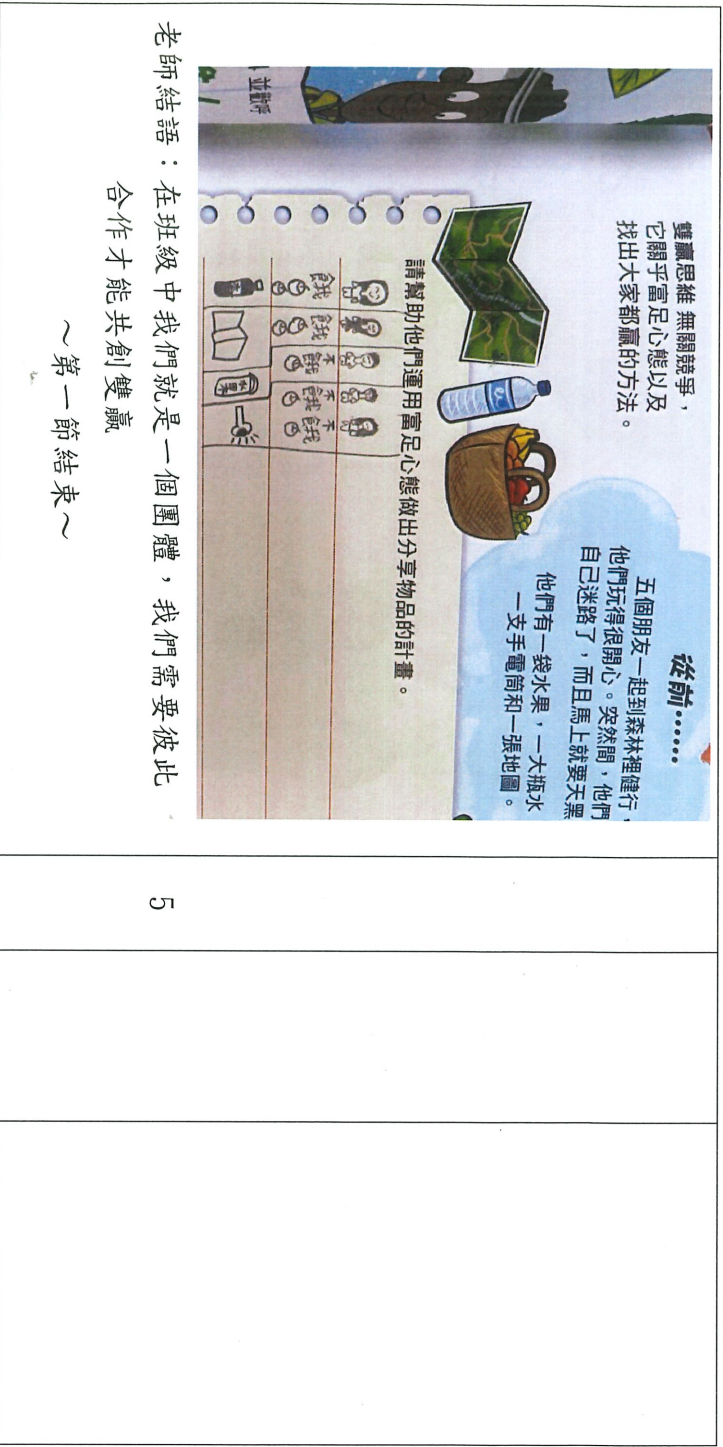 雙贏思維 無關競爭，
它關乎富足心態以及
找出大家都贏的方法。
從前……
五個朋友一起到森林裡健行，
他們玩得很開心。突然間，他們
自己迷路了，而且馬上就要天黑
他們有一袋水果，一大瓶水
一支手電筒和一張地圖。
請幫助他們運用富足心態做出分享物品的計畫。
並歡呼
餓 餓 不餓 不餓 不餓
水果
老師結語：在班級中我們就是一個團體，我們需要彼此
合作才能共創雙贏
～第一節結束～
5